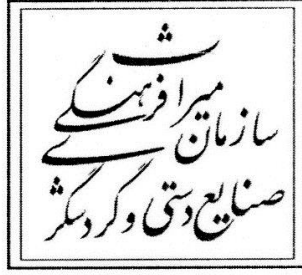 سازمان میراث فرهنگی
صنایع دستی و گردشگری